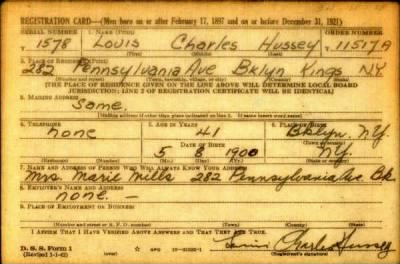 REGISTRATION CARD—(Men born on or after February 17, 1897 and on or before December 31, 1921)
SERIAL NUMBER 1. NAME (Print) ORDER NUMBER
1578 Louis Charles Hussey 11517A
(First) (Middle) (Last)
2. PLACE OF RESIDENCE (Print)
282 Pennsylvania Ave Bklyn Kings N.Y.
(Number and street) (Town, township, village, or city) (County) (State)
[THE PLACE OF RESIDENCE GIVEN ON THE LINE ABOVE WILL DETERMINE LOCAL BOARD
JURISDICTION; LINE 2 OF REGISTRATION CERTIFICATE WILL BE IDENTICAL]
3. MAILING ADDRESS
Same.
[Mailing address if other than place indicated on line 2. If same insert word same]
4. TELEPHONE 5. AGE IN YEARS 6. PLACE OF BIRTH
none 41 Bklyn. N.Y.
DATE OF BIRTH (Town or county)
5 8 1900 N.Y.
(Exchange) (Number) (Mo.) (Day) (Yr.) (State or country)
7. NAME AND ADDRESS OF PERSON WHO WILL ALWAYS KNOW YOUR ADDRESS
Mrs Marie Mills 282 Pennsylvania Ave Bk
8. EMPLOYER'S NAME AND ADDRESS
none. —
9. PLACE OF EMPLOYMENT OR BUSINESS
(Number and street or R. F. D. number) (Town) (County) (State)
I AFFIRM THAT I HAVE VERIFIED ABOVE ANSWERS AND THAT THEY ARE TRUE.
D. S. S. Form 1 GPO Louis Charles Hussey
(Revised 1-1-42) (Registrant's signature)